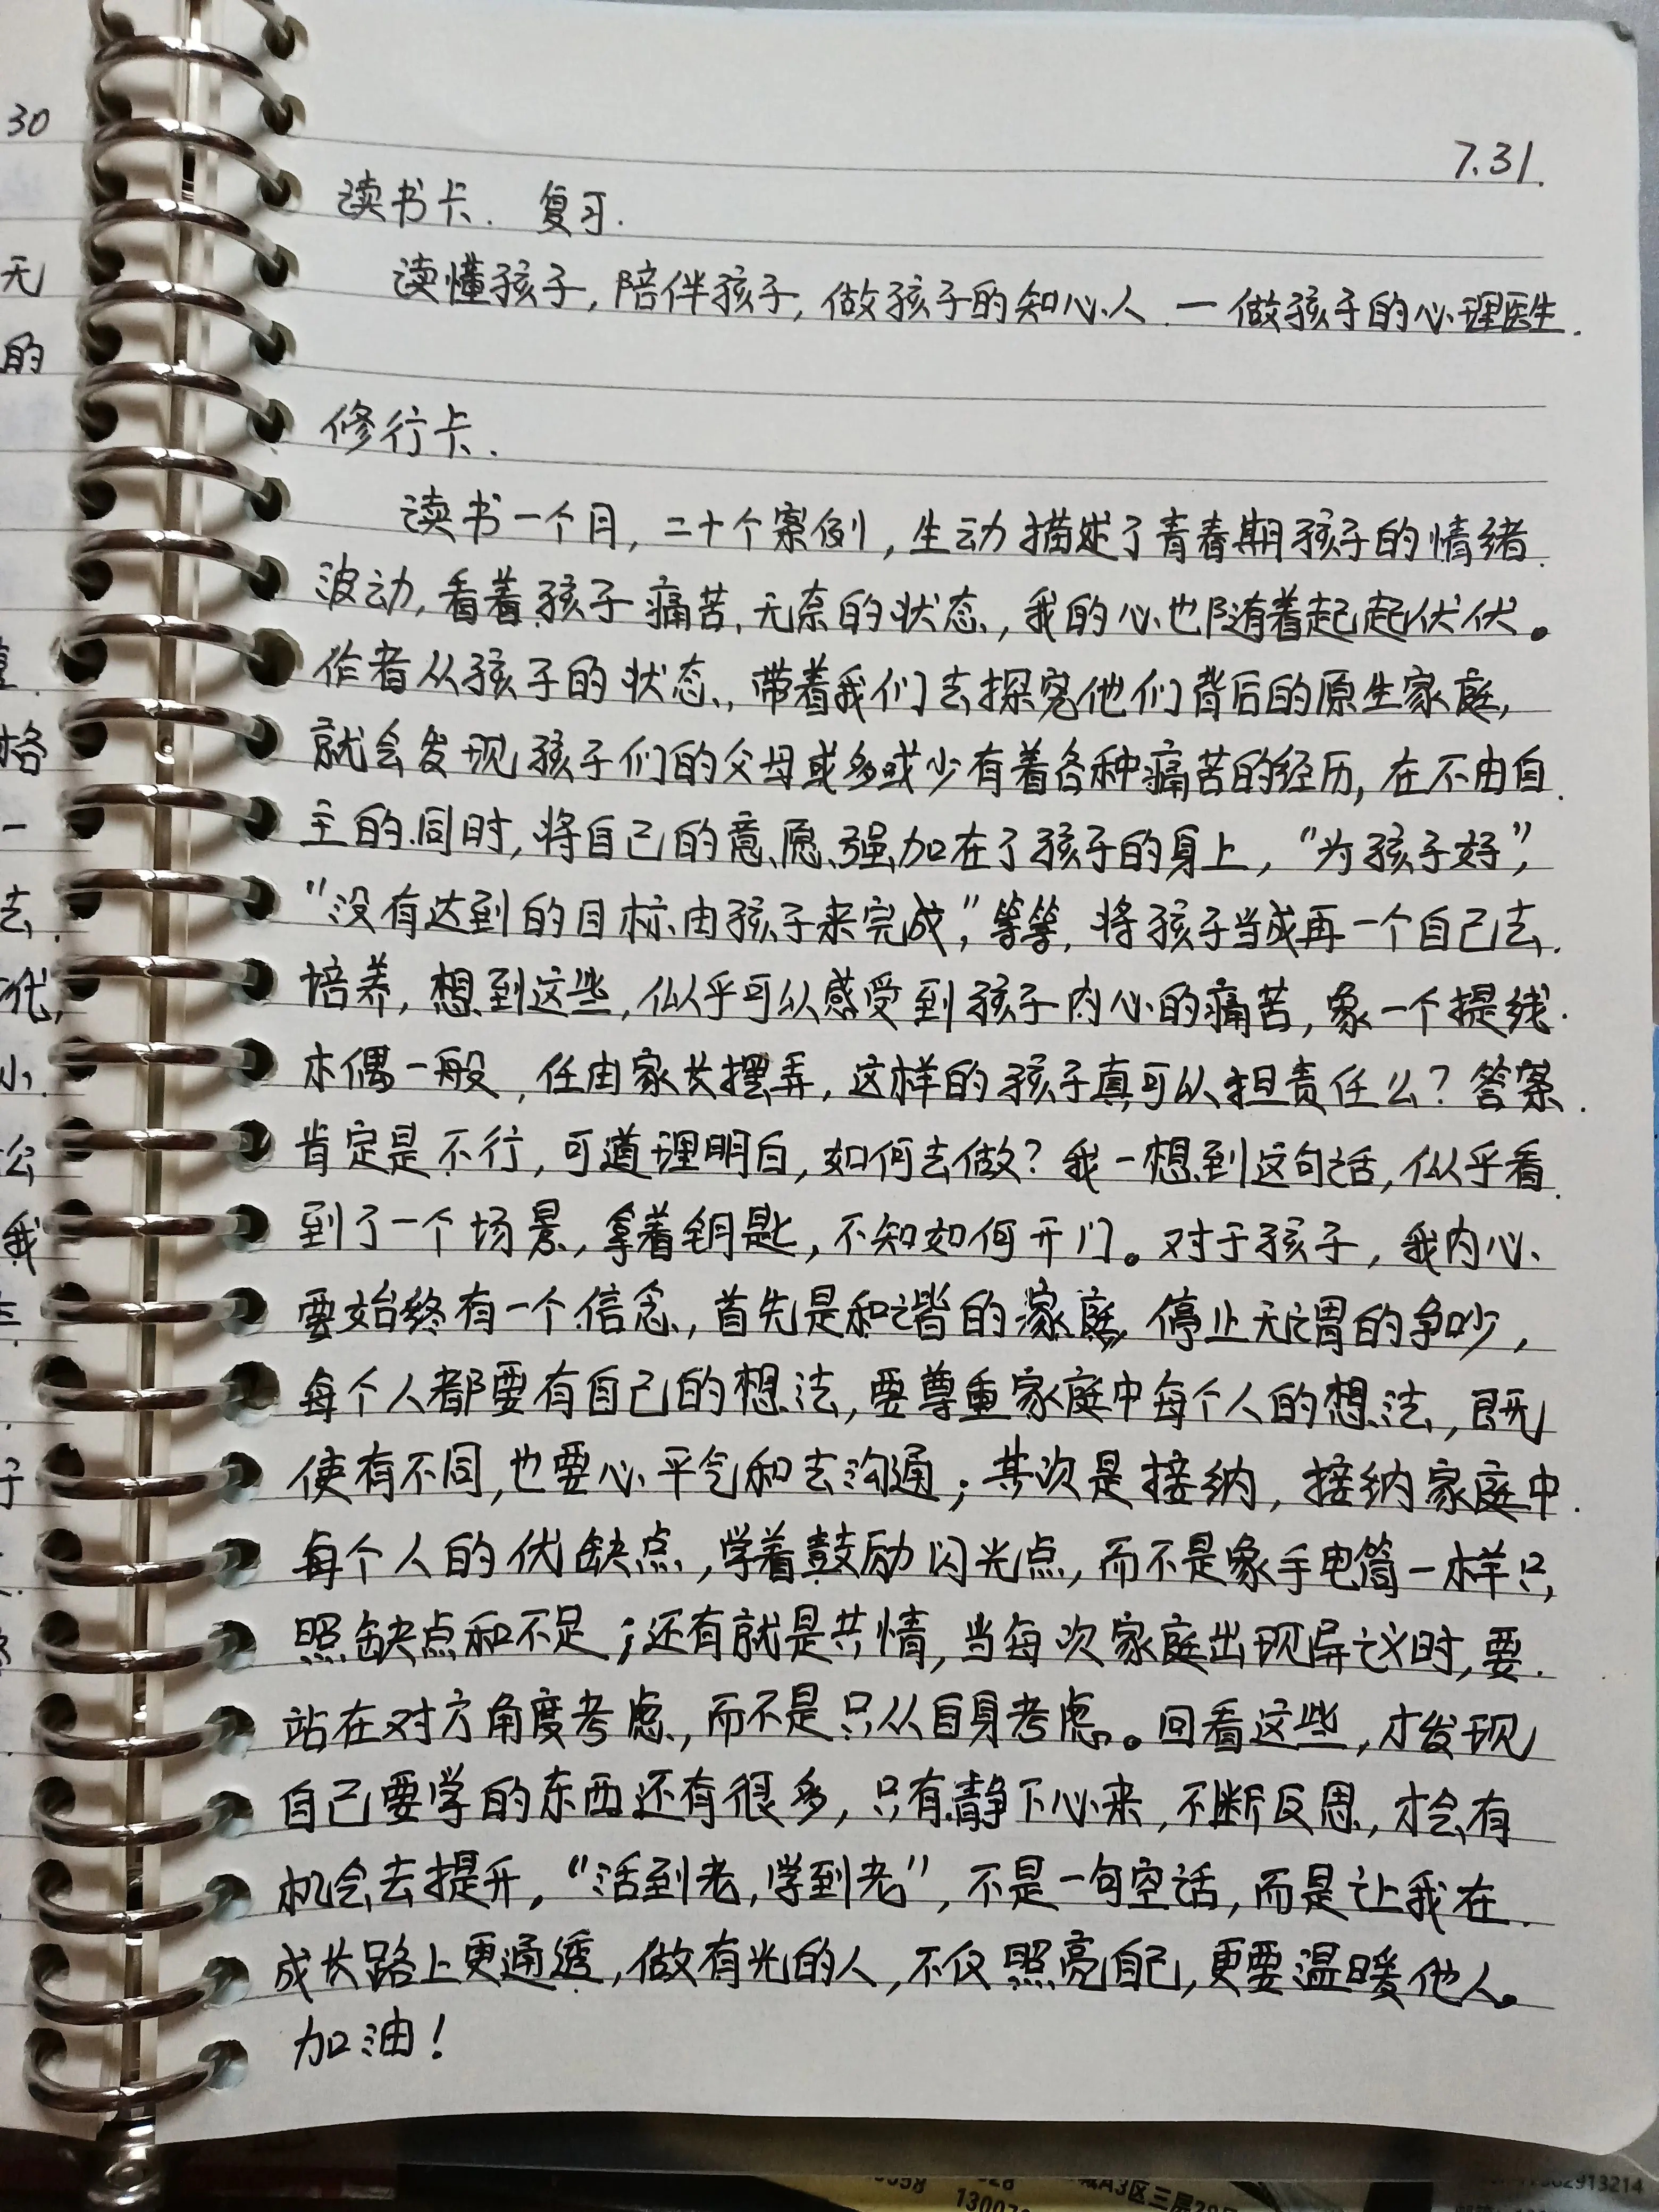 30
7.31.
读书卡. 复习.
读懂孩子,陪伴孩子,做孩子的知心人.一做孩子的心理医生.
无
的
修行卡.
读书一个月,二十个案例,生动描述了青春期孩子的情绪.
波动,看着孩子痛苦,无奈的状态,我的心也随着起起伏伏。
作者从孩子的状态,带着我们去探究他们背后的原生家庭,
就会发现孩子们的父母或多或少有着各种痛苦的经历,在不由自.
格
主的同时,将自己的意愿强加在了孩子的身上,“为孩子好”,
一
“没有达到的目标由孩子来完成”,等等,将孩子当成再一个自己去.
去.
培养,想到这些,似乎可以感受到孩子内心的痛苦,象一个提线.
代,
木偶一般,任由家长摆弄,这样的孩子真可以担责任么?答案.
小.
肯定是不行,可道理明白,如何去做?我一想到这句话,似乎看.
公
到了一个场景,拿着钥匙,不知如何开门。对于孩子,我内心
我
要始终有一个信念,首先是和谐的家庭,停止无谓的争吵,
每个人都要有自己的想法,要尊重家庭中每个人的想法,既
使有不同,也要心平气和去沟通;其次是接纳,接纳家庭中.
子
每个人的优缺点,学着鼓励闪光点,而不是象手电筒一样只,
照缺点和不足;还有就是共情,当每次家庭出现异议时,要.
站在对方角度考虑,而不是只从自身考虑。回看这些,才发现
自己要学的东西还有很多,只有静下心来,不断反思,才会有
机会去提升,“活到老,学到老”,不是一句空话,而是让我在.
成长路上更通透,做有光的人,不仅照亮自己,更要温暖他人。
加油!
A3区三层